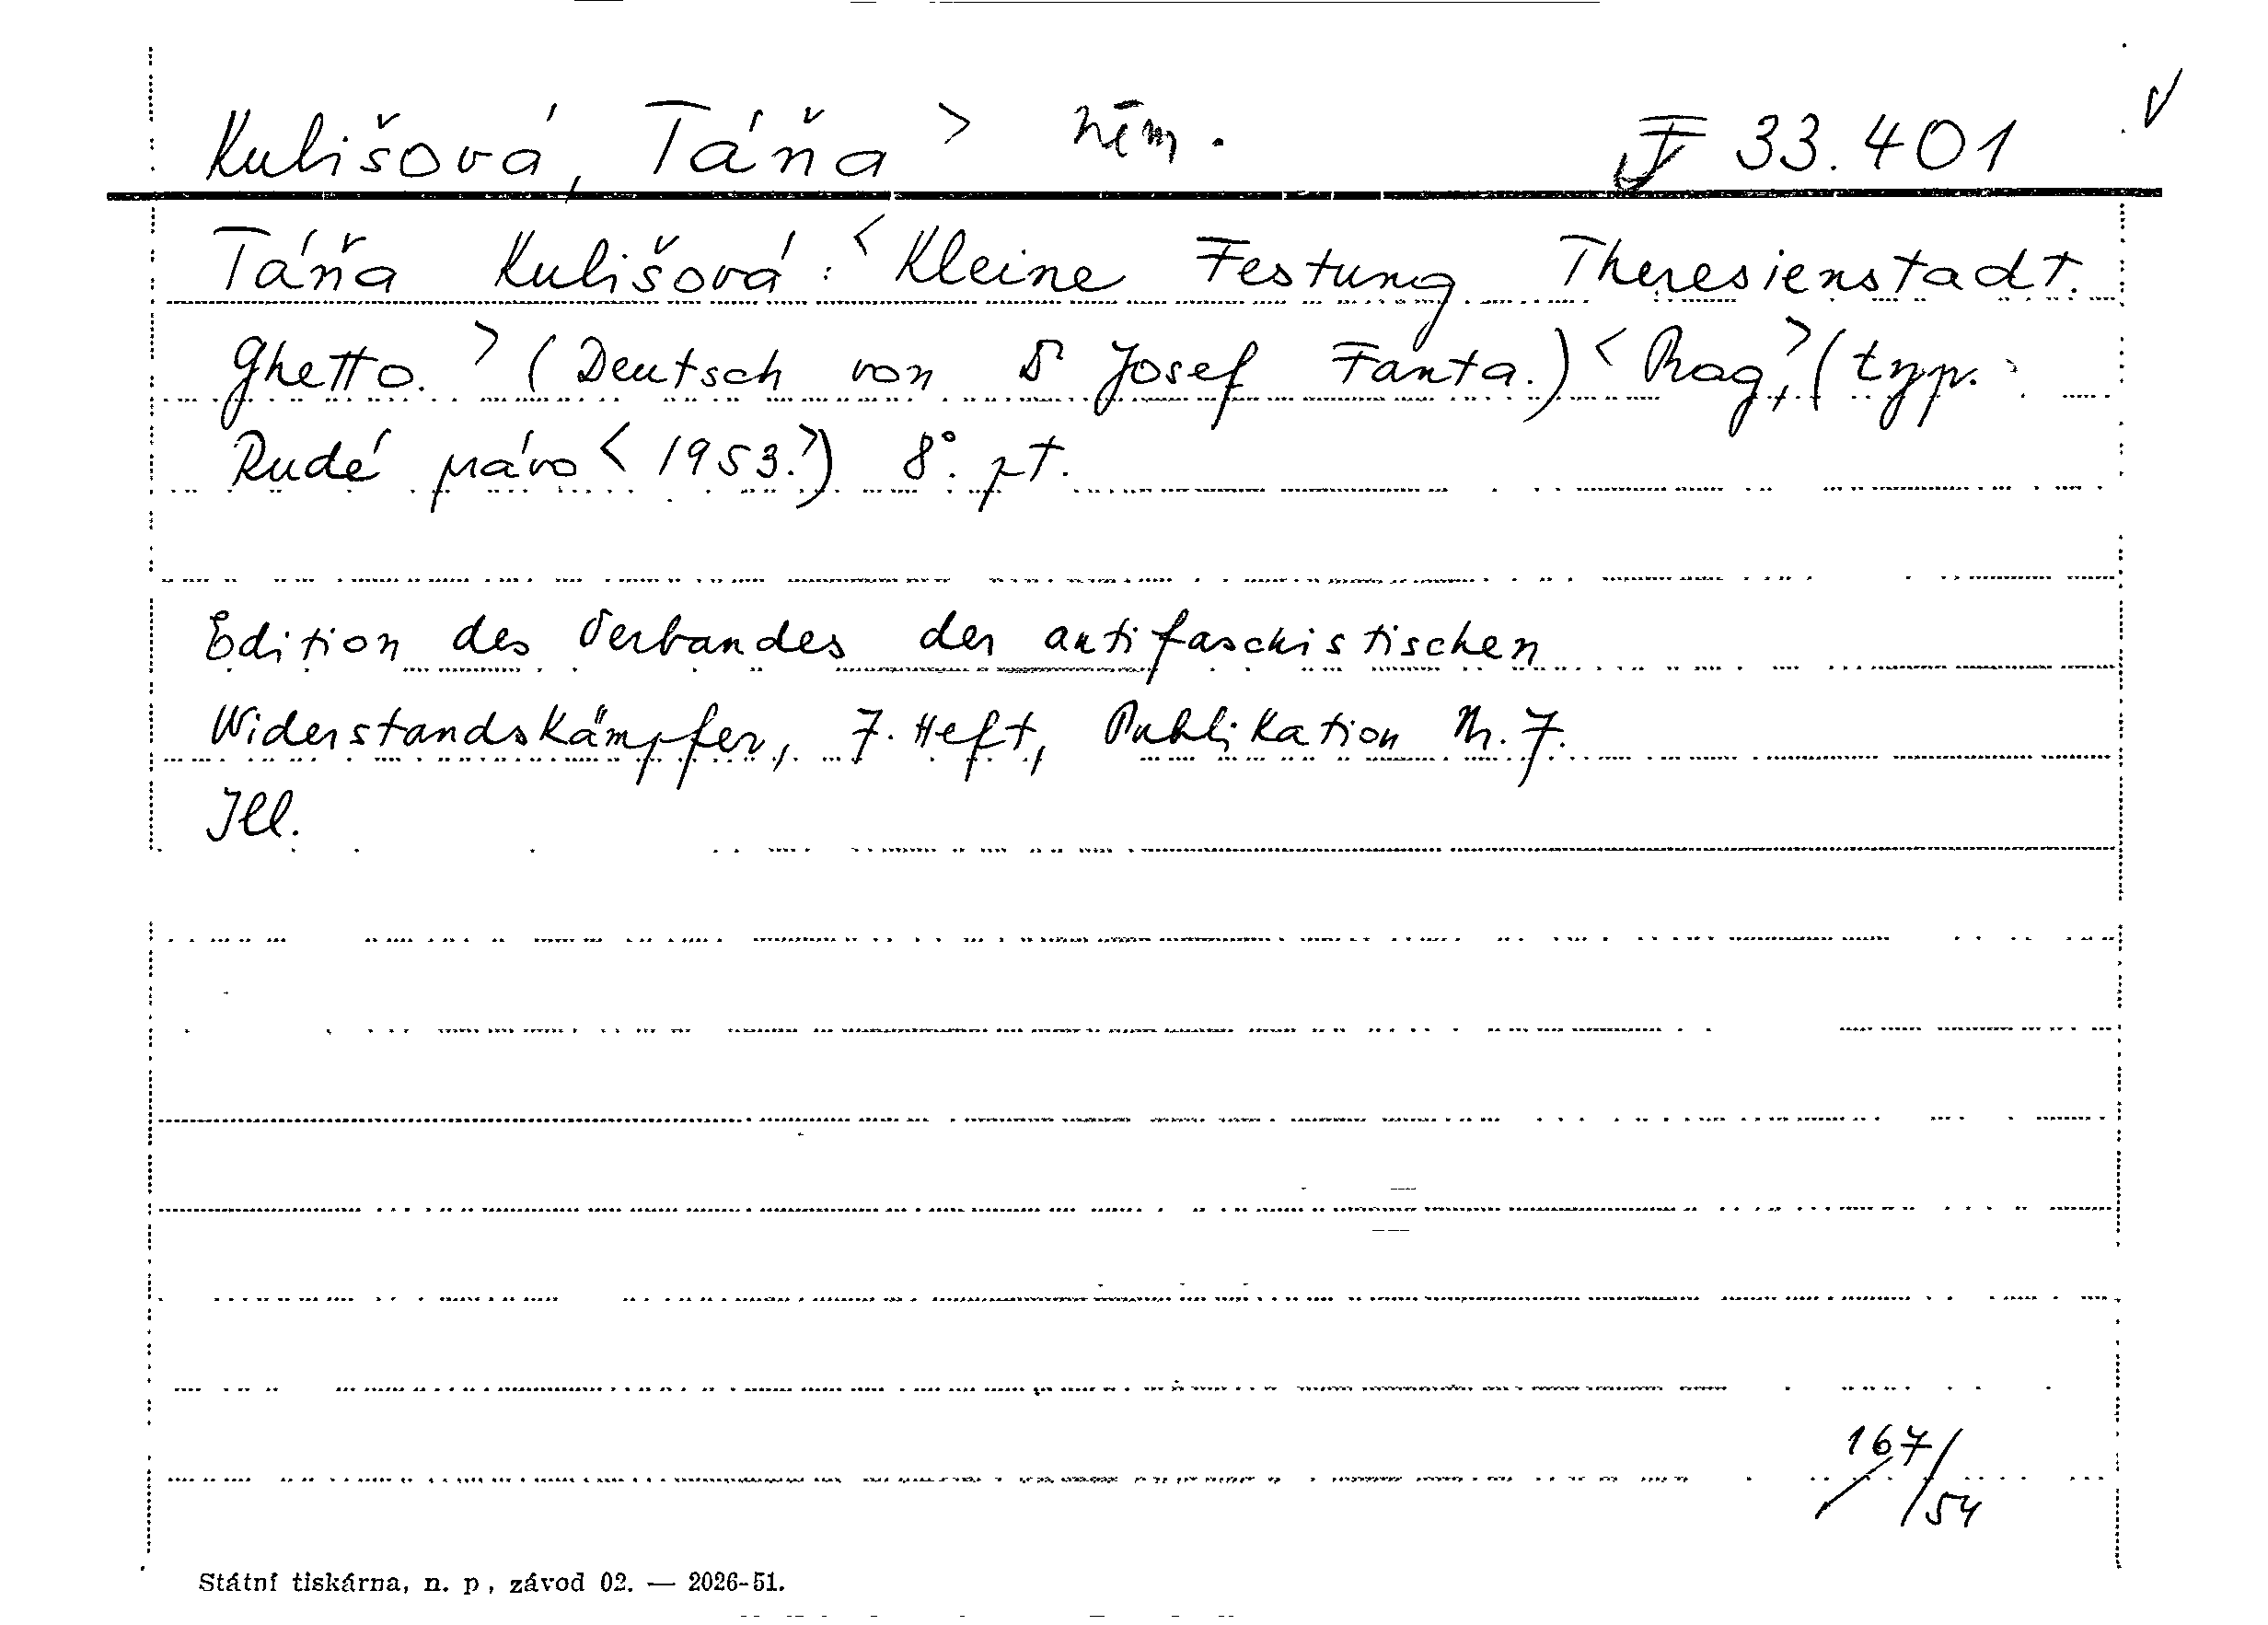 Kulišová, Táňa > něm. F 33.401
Táňa Kulišová: < Kleine Festung Theresienstadt.
Ghetto. > (Deutsch von Dr Josef Fanta.) < Prag, > (typ.
Rudé právo < 1953. >) 8°. pt.
Edition des Verbandes der antifaschistischen
Widerstandskämpfer, 7. Heft, Publikation Nr. 7.
Ill.
167/54
Státní tiskárna, n. p., závod 02. — 2026-51.